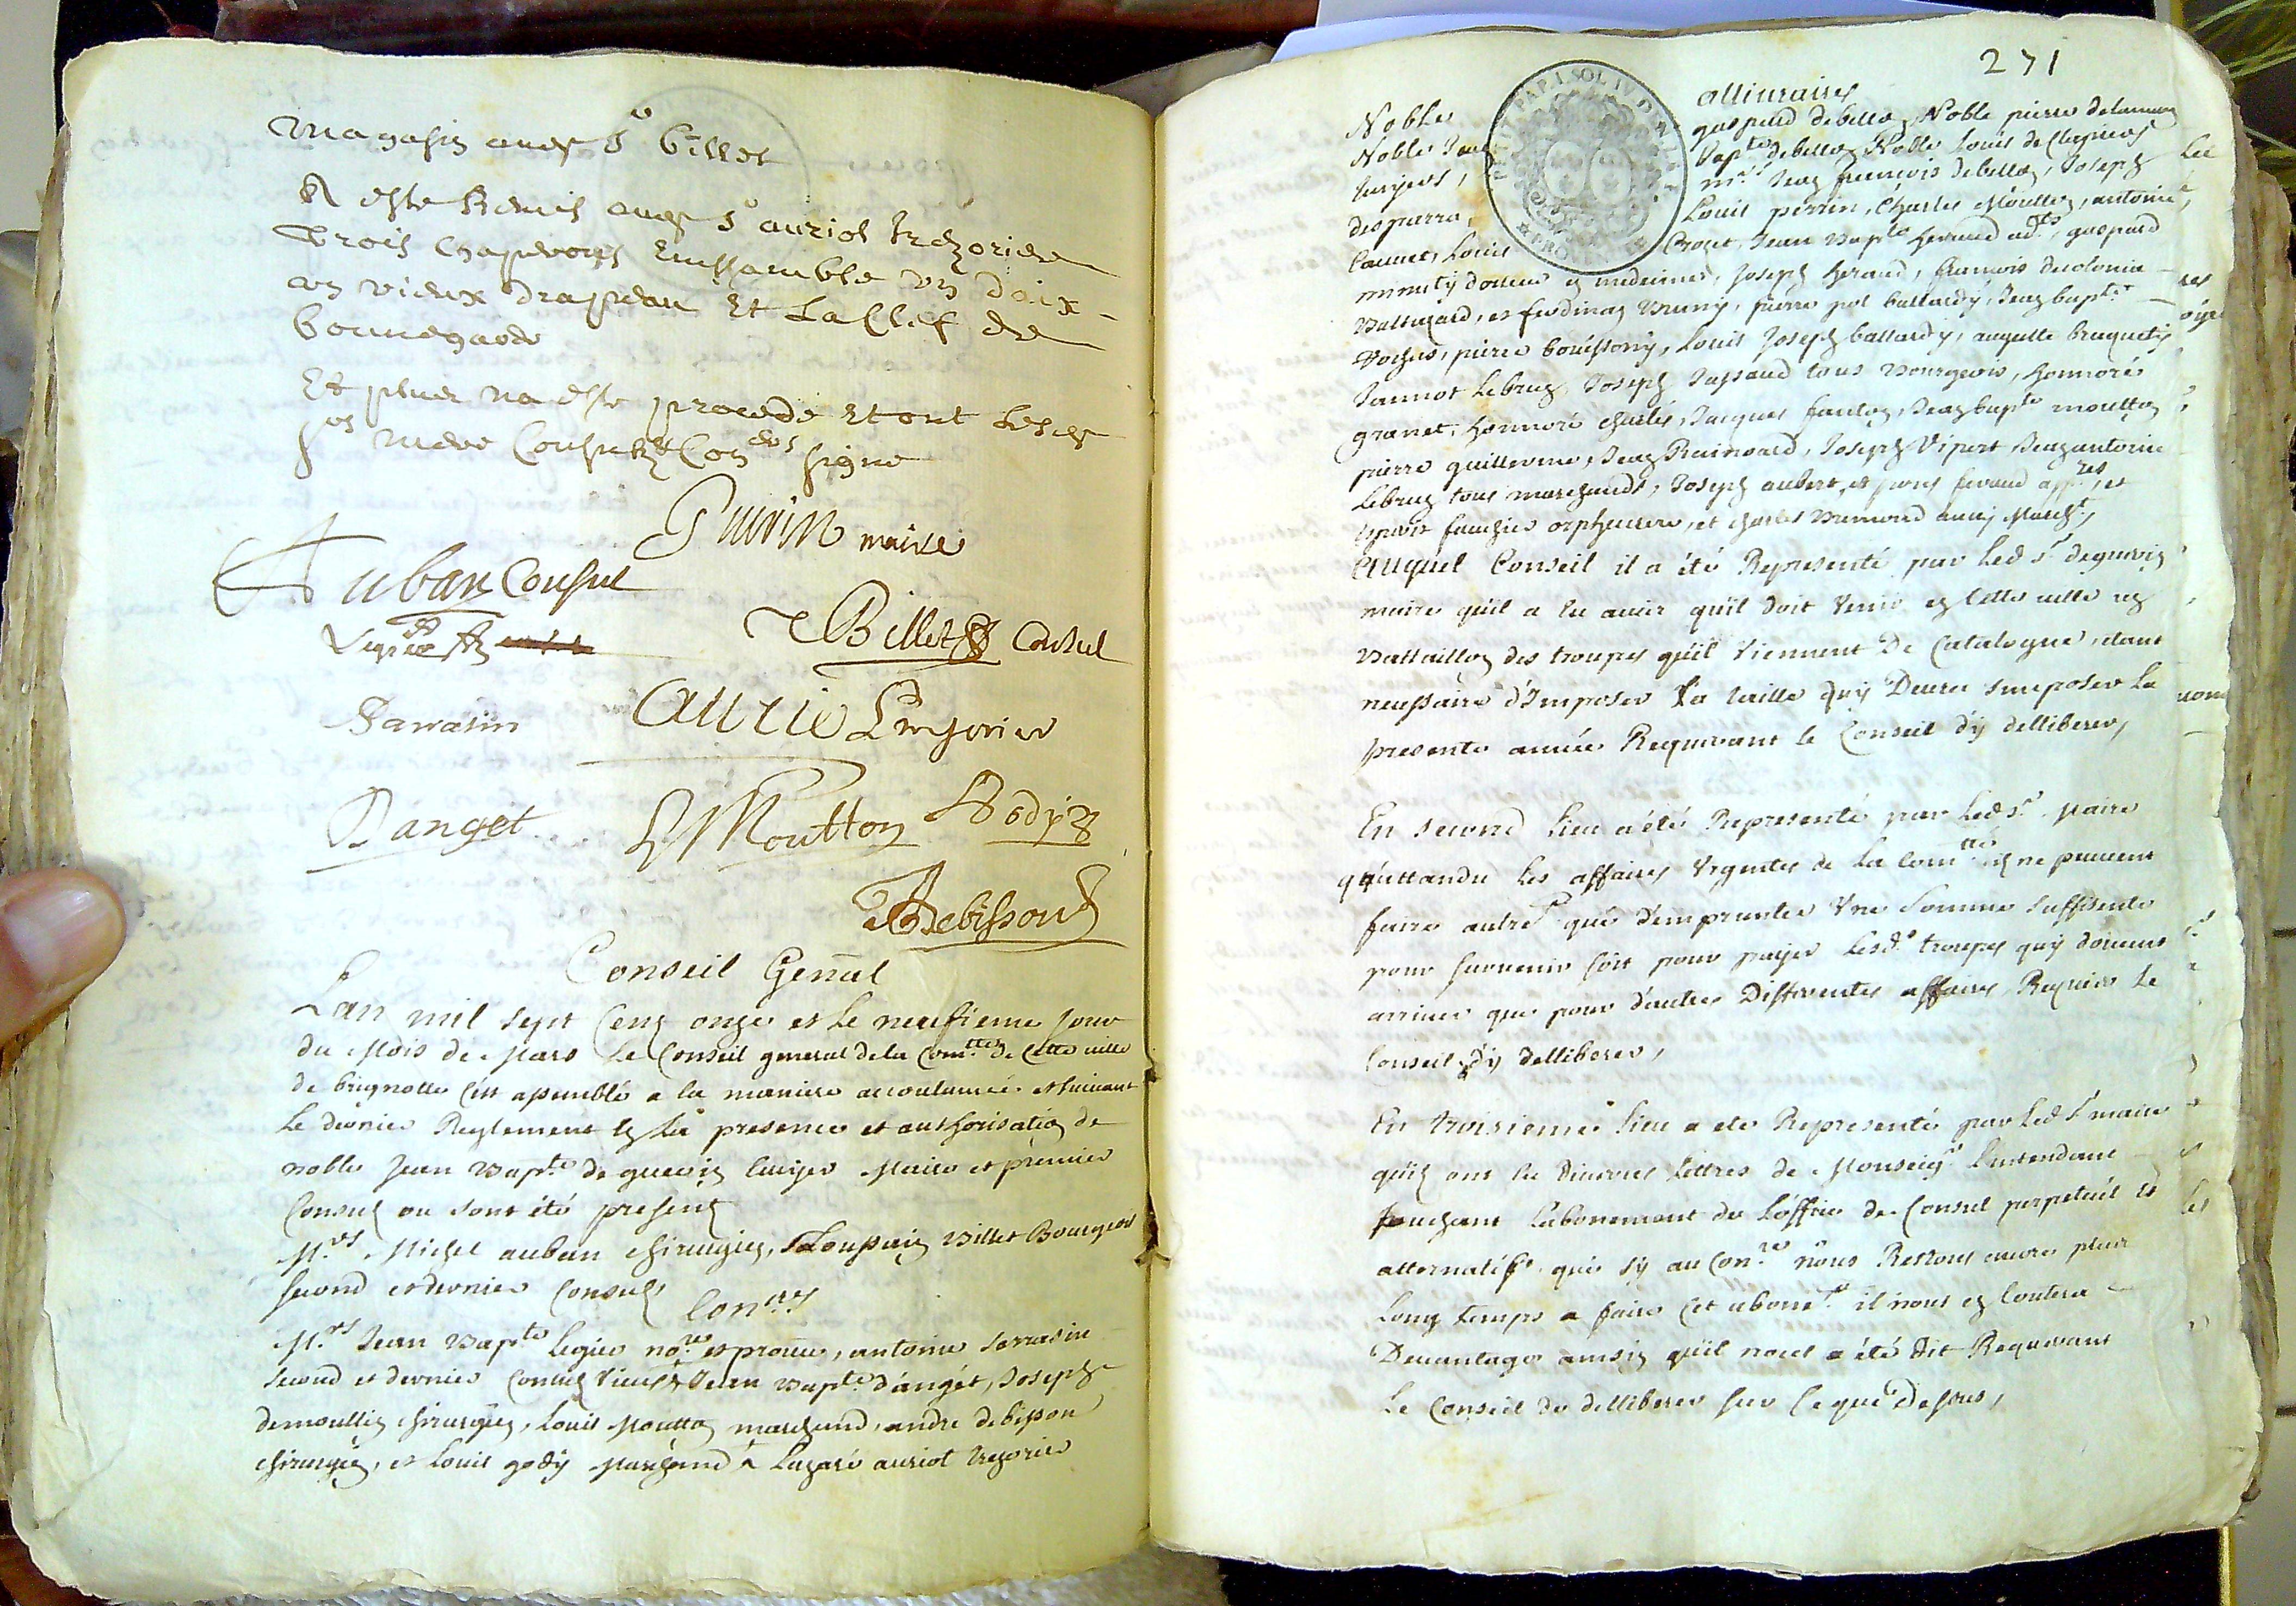 magasin audt Sr Billet
A esté Remis audt Sr auriol trezorier
trois chaperons Emssamble un daix
un vieux drapeau Et La Clef de
bonnegarde
Et plus na esté procedé Et ont Lesdts
srs maire Consuls Et Coners signé
Guerin maire
Auban Consul
Billet Consul
Legier
Sarrasin
Auriol trezorier
Danget
L Moutton
Gody
A debisson
Conseil Genal
Lan mil sept Cens onze et le neufieme jour
du Mois de Mars Le Conseil general de la Comtté de Cette ville
de brignolle s'est assemblé a la maniere accoutumée et suivant
Le dernier Reglement en la presence et authorisation de
noble Jean Bapte de guerin Escuyer Maire et premier
Consul ou sont été presens
Mrs Michel auban chirurgien, Louis Billet Bourgeois
second et dernier Consuls
Coners
Mrs Jean Bapte legier nore et procur, antoine Sarrasin
second et dernier Consuls vieux Jean Bapte d'anget, Joseph
demoullin chirurgien, Louis Moutton marchand, andre debisson
chirurgien, et Louis gody Marchand Lazare auriol trezorier
271
allivraires
Nobles gaspard debellon Noble pierre de
Noble Jean Bapte debellon Noble Louis de Clapiers
escuyers, mre Jean françois debellon, Joseph
desparra, Louis perrin, Charles Moutton, antoine
Caunet, Louis Crout, Jean Bapte geraud adts, gaspard
minuty docteur en medecine, Joseph geraud, françois
et ferdinan Bruny, pierre pol ballardy, Jean bapte
pierre bouissony, Louis Joseph ballardy, auguste braquety
Jannot Lebrun Joseph Jassaud tous Bourgeois, honnoré
granet, honnoré charles, Jacques fanton, Jean bapte moutton
pierre guillerme, Jean Rainoard, Joseph Vipert Jean antoine
Lebrun tous marchands, Joseph aubert, et feraud appres, et
orpheuvre, et charles Bremond aussy Marcht,
Auquel Conseil il a été Representé par Led sr deguerin
maire qu'il a eu avis qu'il doit venir en Cette ville un
Battaillon des troupes qu'il viennent De Catalogne, etant
necessaire d'Imposer La taille quy Devra s'imposer La
presente année Requerant le Conseil d'y delliberer,
En second lieu a été Representé par Led sr Maire
qu'attandu Les affaires Urgentes de La Comtté ils ne peuvent
faire autremt que d'emprunter Une somme suffisente
pour survenir soit pour payer Lesds troupes quy doivent
arriver que pour d'autres Differentes affaires Requiere Le
Conseil d'y delliberer,
En troisieme lieu a eté Representé par Led sr maire
qu'ils ont eu diverses Lettres de Monseigr L'intendant
touchant L'abonement de L'office de Consul perpetuel et
alternatif que sy au Conre nous Restons encore plus
Long temps a faire Cet abonemt il nous en Coutera
Davantage ainsin qu'il nous a été dit Requerant
Le Conseil de delliberer sur Ce que Dessus,